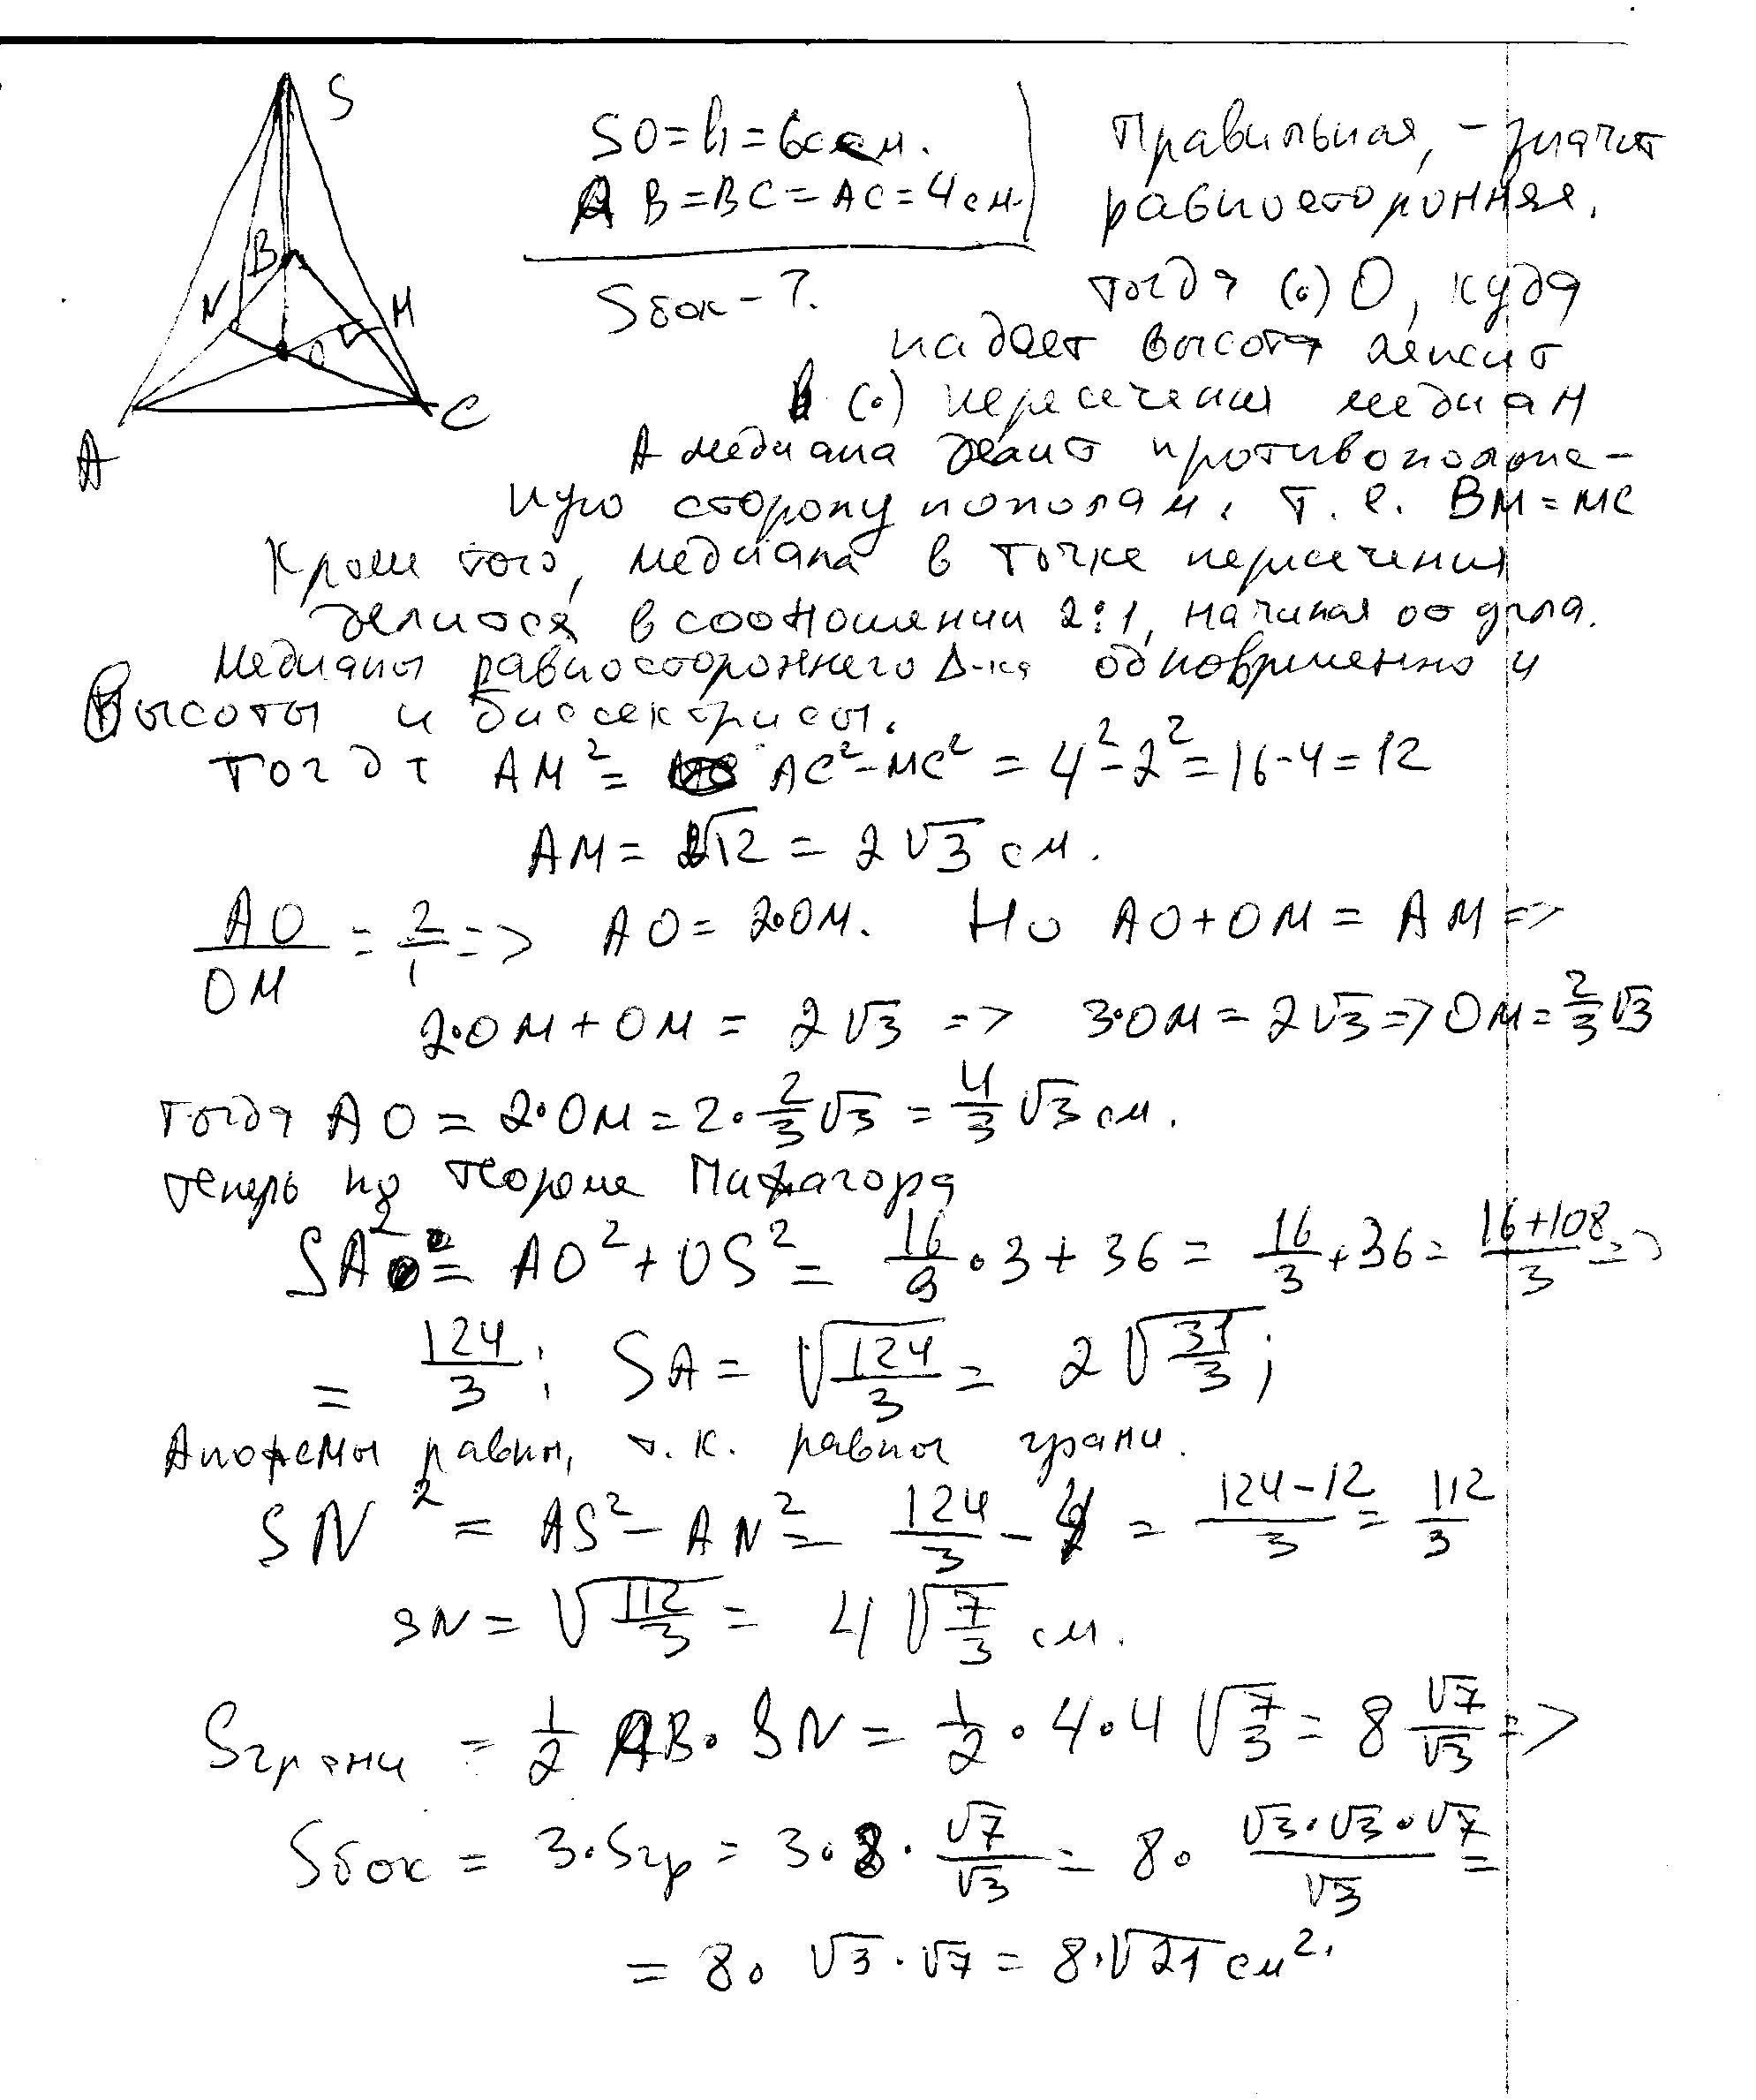 S
B
N
M
O
A
C
SO=h=6см.
AB=BC=AC=4см.
Sбок-?
Правильная, - значит
равносторонняя.
тогда (·) О, куда
падает высота лежит
в (·) пересечения медиан
А медиана делит противополож-
ную сторону пополам, т.е. BM=MC
Кроме того, медиана в точке пересечения
делится в соотношении 2:1, начиная от угла.
Медианы равностороннего Δ-ка одновременно и
высоты и биссектрисы.
Тогда AM² = AC²-MC² = 4²-2² = 16-4=12
AM = √12 = 2√3 см.
AO/OM = 2/1 => AO = 2·OM. Но AO+OM = AM =>
2·OM+OM = 2√3 => 3·OM = 2√3 => OM = 2/3 √3
тогда AO = 2·OM = 2·2/3 √3 = 4/3 √3 см.
теперь по теореме Пифагора
SA² = AO²+OS² = 16/9·3+36 = 16/3+36 = (16+108)/3 =>
= 124/3; SA = √(124/3) = 2√(31/3);
Апофемы равны, т.к. равны грани.
SN² = AS²-AN² = 124/3 - 4 = (124-12)/3 = 112/3
SN = √(112/3) = 4√(7/3) см.
Sграни = 1/2 AB·SN = 1/2·4·4√(7/3) = 8 √7/√3 =>
Sбок = 3·Sгр = 3·8·√7/√3 = 8·(√3·√3·√7)/√3 =
= 8·√3·√7 = 8·√21 см².